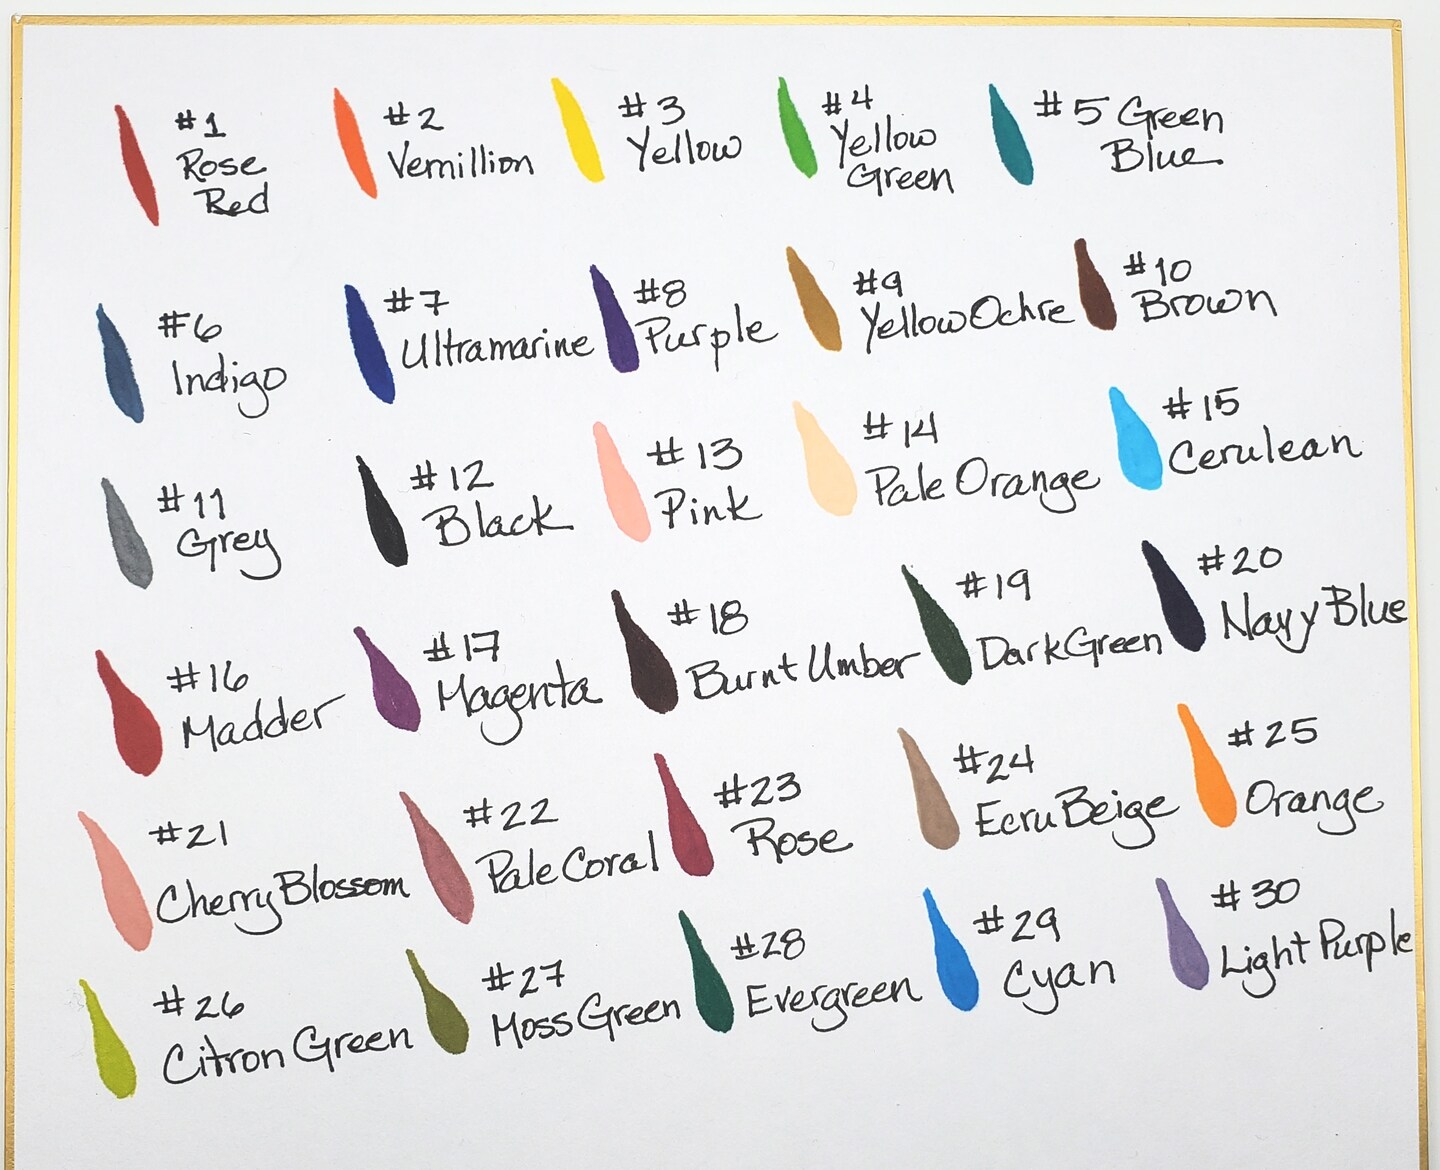 #1
Rose
Red
#2
Vemillion
#3
Yellow
#4
Yellow
Green
#5 Green
Blue
#6
Indigo
#7
Ultramarine
#8
Purple
#9
Yellow Ochre
#10
Brown
#11
Grey
#12
Black
#13
Pink
#14
Pale Orange
#15
Cerulean
#16
Madder
#17
Magenta
#18
Burnt Umber
#19
Dark Green
#20
Navy Blue
#21
Cherry Blossom
#22
Pale Coral
#23
Rose
#24
Ecru Beige
#25
Orange
#26
Citron Green
#27
Moss Green
#28
Evergreen
#29
Cyan
#30
Light Purple